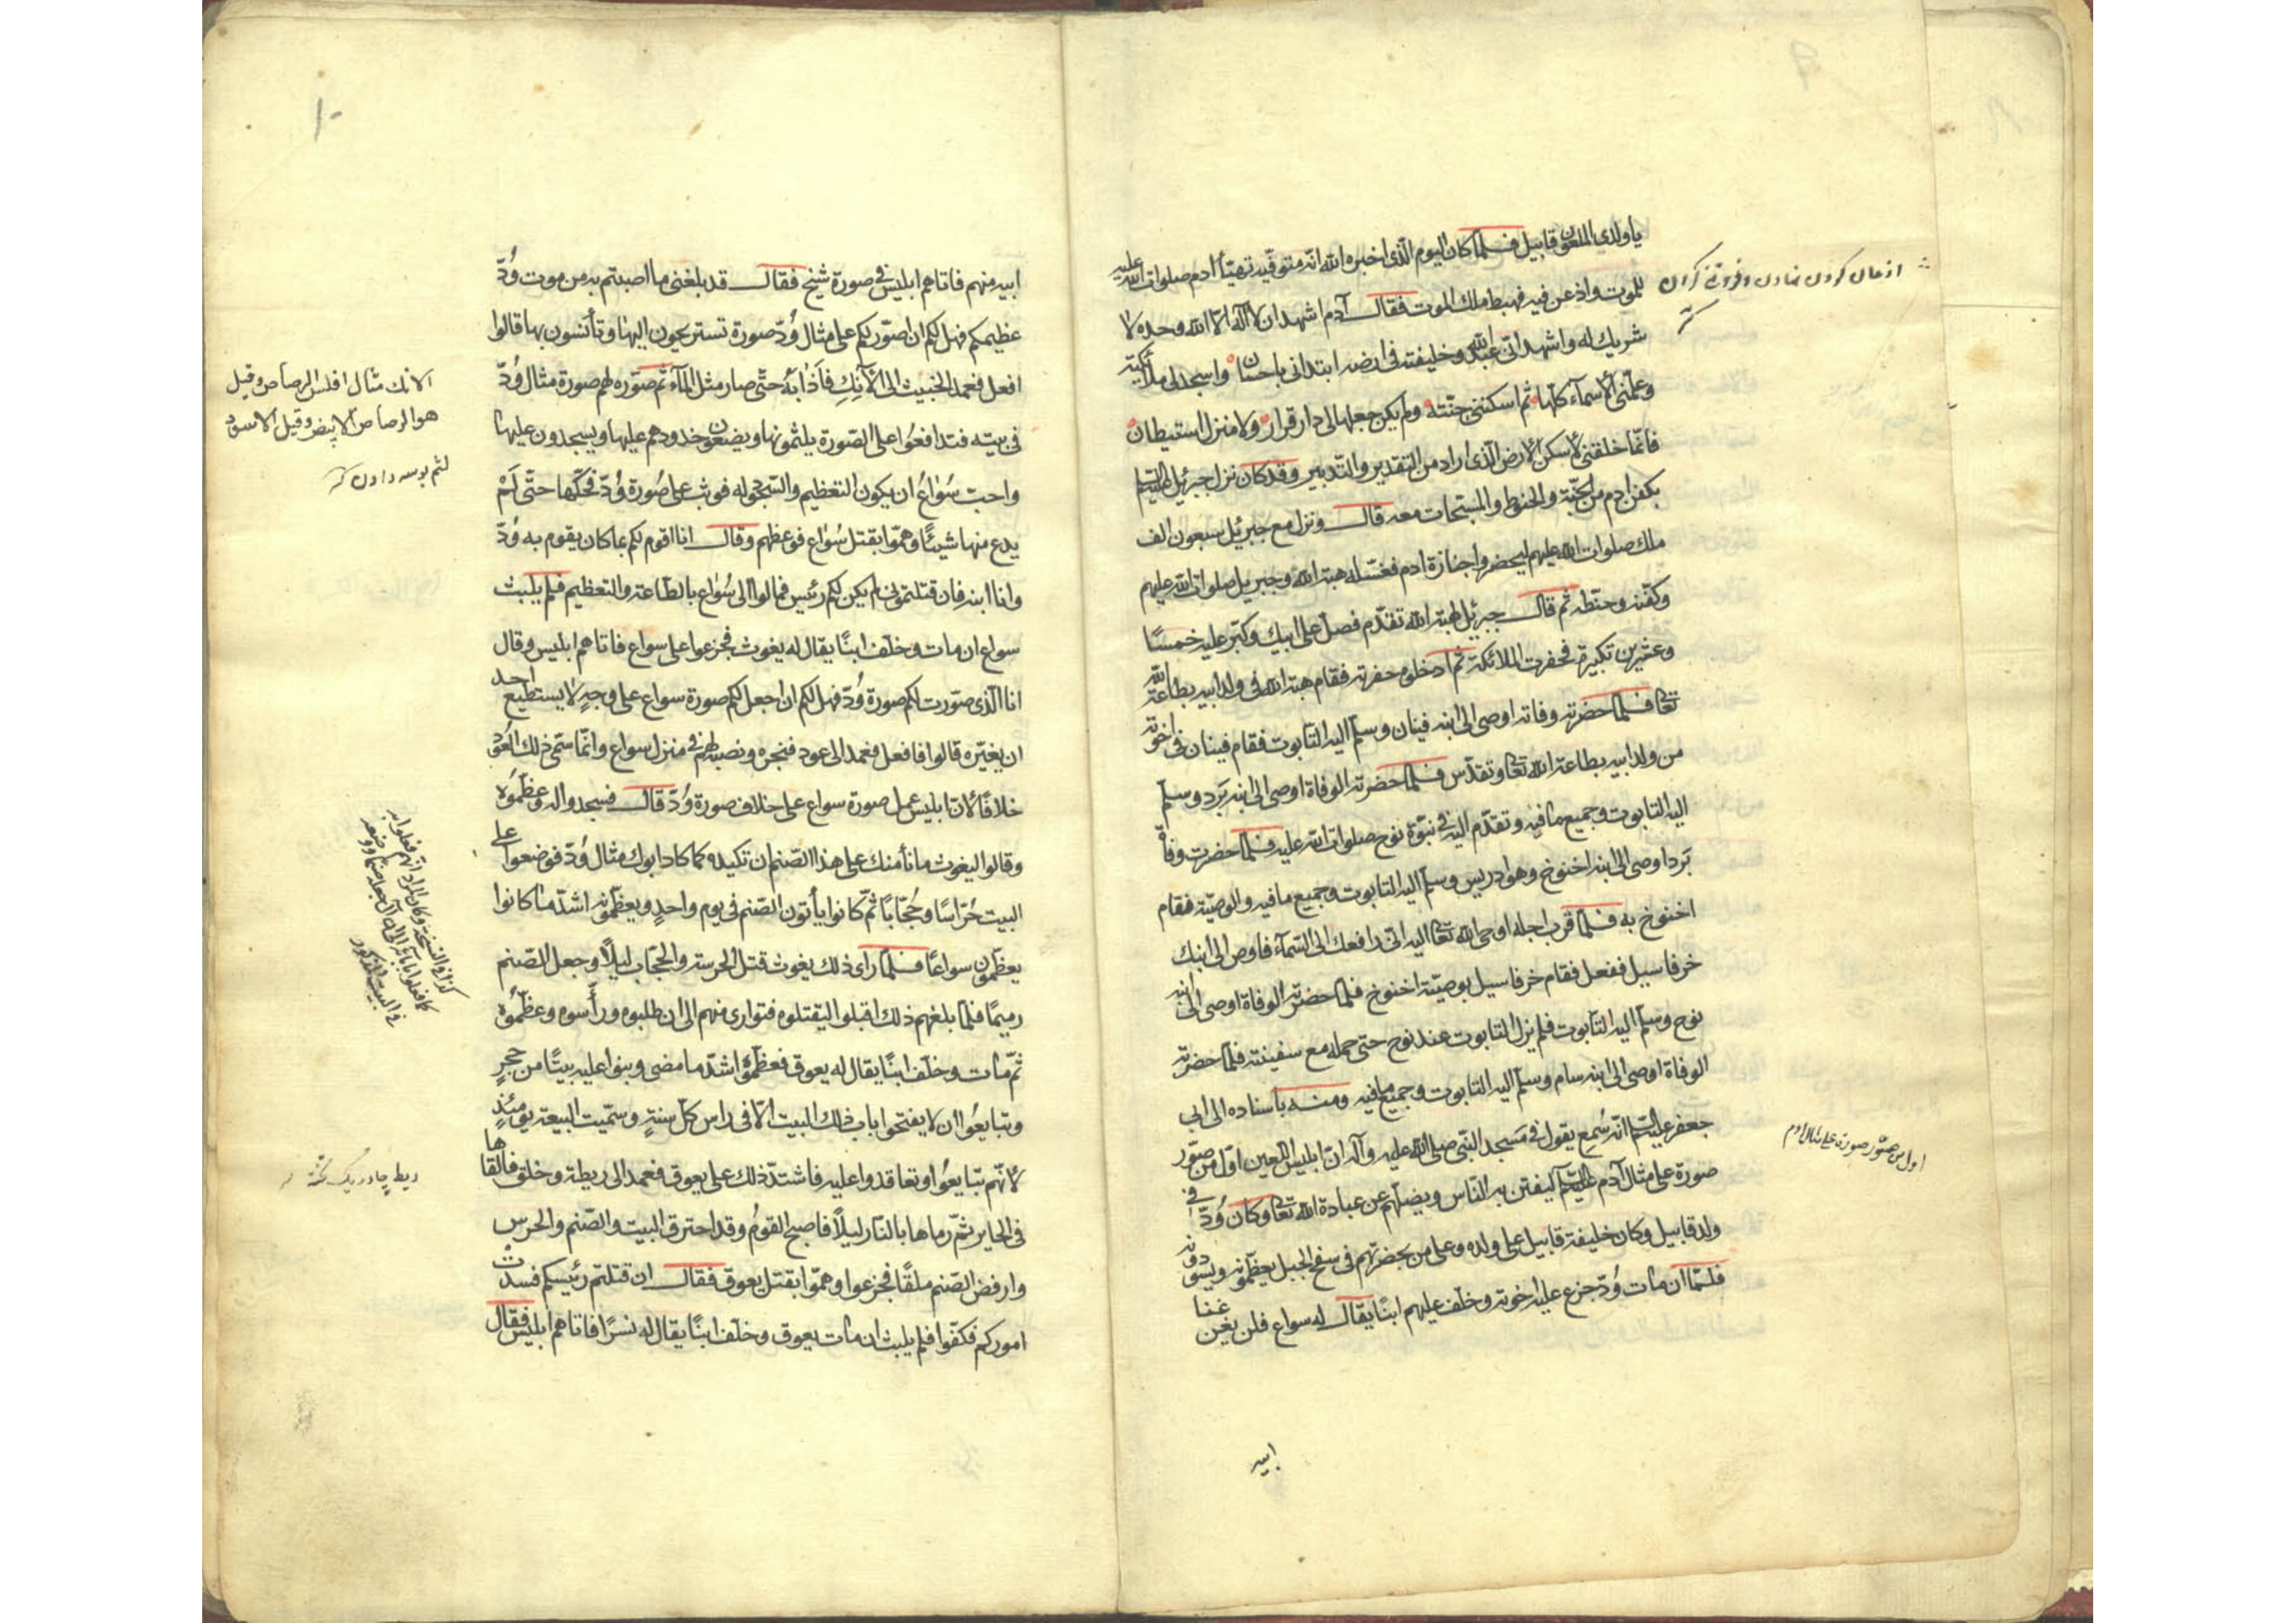 يا ولدي الملعون قابيل فلما كان اليوم الّذى اخبره الله انّه متوفّيه تهيّأ ادم صلوات الله عليه
للموت واذعن فيه فهبط ملك الموت فقال آدم اشهد ان لا اله الّا الله وحده لا
شريك له واشهد انّى عبد الله وخليفته فى ارضه ابتدانى باحسان واسجد لى ملائكته
وعلّمنى الأسمآء كلّها ثم اسكننى جنّته ولم يكن جعلها لى دار قرار ولا منزل استيطان
فانّما خلقنى لأسكن الأرض الّذى اراد من التقدير والتّدبير وقد كان نزل جبرئيل عليه السلم
بكفن ادم من الجنّة والحنوط والمسحات معه قال ونزل مع جبرئيل سبعون الف
ملك صلوات الله عليهم ليحضروا جنازة ادم فغسّله هبة الله وجبريل صلوات الله عليهم
وكفّنه وحنّطه ثم قال جبرئيل لهبة الله تقدّم فصلّ على ابيك وكبّر عليه خمسًا
وعشرين تكبيرة فحفرت الملائكة ثم ادخلوه حفرته فقام هبة الله فى ولد ابيه بطاعة الله
تعا فلما حضرته وفاته اوصى الى ابنه قينان وسلّم اليه التابوت فقام قينان فى اخوته
من ولد ابيه بطاعة الله تعا وتقدّس فلما حضرته الوفاة اوصى الى ابنه برد وسلّم
اليه التابوت وجميع ما فيه وتقدّم اليه فى نبوّة نوح صلوات الله عليه فلما حضرت وفاة
برد اوصى الى ابنه اخنوخ وهو ادريس وسلّم اليه التابوت وجميع ما فيه والوصيّة فقام
اخنوخ به فلما قرب اجله اوحى الله تعا اليه انّى رافعك الى السّمآء فاوص الى ابنك
خرقاسيل ففعل فقام خرقاسيل بوصيّة اخنوخ فلما حضرته الوفاة اوصى الى ابنه
نوح وسلّم اليه التابوت فلم يزل التابوت عند نوح حتى حمله مع سفينته فلمّا حضرته
الوفاة اوصى الى ابنه سام وسلّم اليه التابوت وجميع ما فيه ومنه باسناده الى ابى
جعفر عليه السلم انّه سُمع يقول فى مسجد النّبى صلى الله عليه وآله انّ ابليس اللّعين اوّل من صوّر
صورة على مثال آدم عليه السلم ليفتن به النّاس ويضلّهم عن عبادة الله تعا وكان وُدّ فى
ولد قابيل وكان خليفة قابيل على ولده وعلى من بحضرتهم فى سفح الجبل يعظّمونه ويسودونه
فلمّا ان مات وُدّ جزع عليه اخوته وخلّف عليهم ابنًا يقال له سواع فلن يغن غنا
ابيه
اذعان كردن نهادن وفروتنى كردن
كنز
اول من صوّر صورة على مثال ادم
١٠
ابيه منهم فاتاهم ابليس فى صورة شيخ فقال قد بلغنى ما اصبتم به من موت وُدّ
عظيمكم فهل لكم ان اصوّر لكم على مثال وُدّ صورة تستريحون اليها وتأنسون بها قالوا
افعل فعمد الخبيث الى الآنك فاَذابه حتّى صار مثل المآء ثم صوّره لهم صورة مثال وُدّ
فى بيته فتدافعوا على الصّورة يلثمونها ويضعون خدودهم عليها ويسجدون عليها
واحبّ سُواعُ ان يكون التعظيم والسّجود له فوثب على صُورة وُدّ فحكّها حتّى لَمْ
يدع منها شيئًا وهمّوا بقتل سُواع فوعظهم وقال انا اقوم لكم بما كان يقوم به وُدّ
وانا ابنه فان قتلتمونى لم يكن لكم رئيس فمالوا الى سُواع بالطّاعة والتعظيم فلم يلبث
سواع ان مات وخلّف ابنًا يقال له يغوث فجزعوا على سواع فاتاهم ابليس وقال
انا الّذى صوّرت لكم صورة وُدّ فهل لكم ان اجعل لكم صورة سواع على وجهٍ لا يستطيع احد
ان يغيّره قالوا فافعل فعمد الى عود فنجره ونصبه لهم فى منزل سواع وانّما سمّى ذلك العُود
خلافًا لأنّ ابليس عمل صورة سواع على خلاف صورة وُدّ قال فسجدوا له وعظّموُه
وقالوا ليغوث ما نأمنك على هذا الصّنم ان تكيده كما كاد ابوك مثال وُدّ فوضعوا على
البيت حُرّاسًا وحُجّابًا ثمّ كانوا يأتون الصّنم فى يوم واحدٍ ويعظّمونه اشدّ ما كانوا
يعظّمون سواعًا فلما راى ذلك يغوث قتل الحرسة والحجّاب ليلًا وجعل الصّنم
رميمًا فلمّا بلغهم ذلك اقبلوا ليقتلوه فتوارى منهم الى ان طلبوه ورأّسوه وعظّموُه
ثمّ مات وخلّف ابنًا يقال له يعوق فعظّموُه اشدّ ما مضى وبنوا عليه بيتًا من حجرٍ
وتبايعُوا أن لا يفتحوا باب ذلك البيت الّا فى راس كلّ سنةٍ وسمّيت البيعة يومئذٍ
لأنّهم تبايعُوا وتعاقدوا عليه فاشتدّ ذلك على يعوق فعمد الى ريطة وخلق فالقاها
فى الحاير ثمّ رماها بالنّار ليلًا فاصبح القومُ وقد احترق البيت والصّنم والحرس
وارفض الصّنم ملقًا فجزعوا وهمّوا بقتل يعوق فقال ان قتلتم رئيسكم فسدتْ
اموركم فكفّوا فلم يلبث ان مات يعوق وخلّف ابنًا يقال له نسرًا فاتاهم ابليس فقال
الانك مثال افلس الرصاص وقيل
هو الرصاص الابيض وقيل الاسود
لثم بوسه دادن كنز
ريط چادر يك لخته